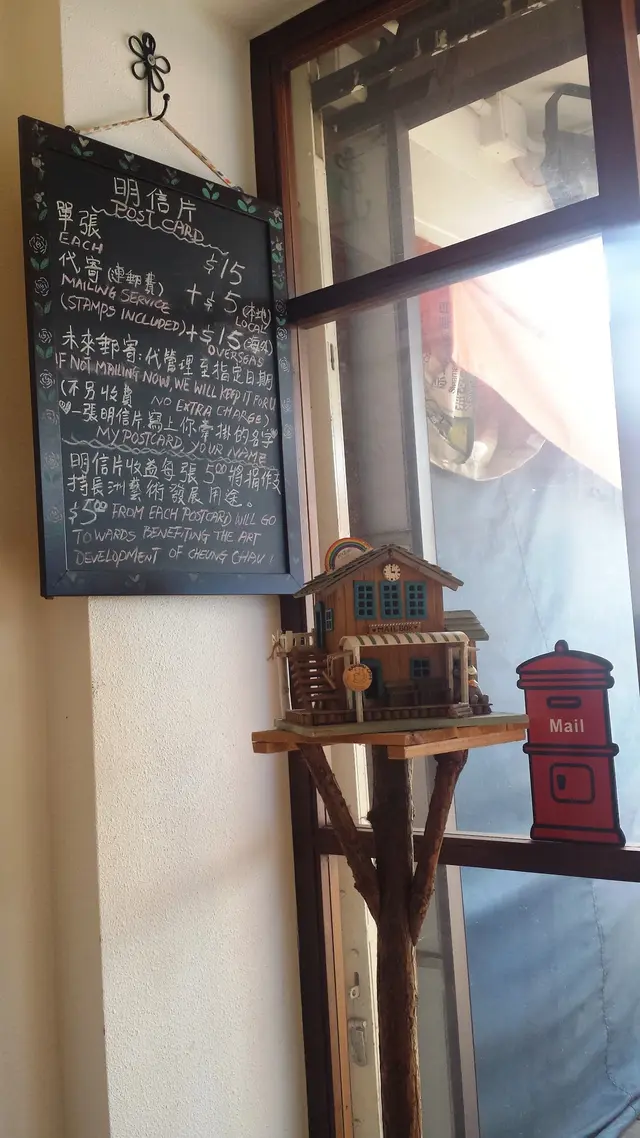 明信片
POSTCARD
單張
EACH
$15
代寄(連郵費)
MAILING SERVICE
(STAMPS INCLUDED)
+$5 (本地)
LOCAL
+$15 (海外)
OVERSEAS
未來郵寄:代管理至指定日期
IF NOT MAILING NOW, WE WILL KEEP IT FOR U
(不另收費 NO EXTRA CHARGE)
一張明信片.寫上你牽掛的名字
MY POSTCARD, YOUR NAME
明信片收益每張 $5.00 將捐作支
持長洲藝術發展用途。
$5.00 FROM EACH POSTCARD WILL GO
TOWARDS BENEFITING THE ART
DEVELOPMENT OF CHEUNG CHAU!
MAILBOX
Mail